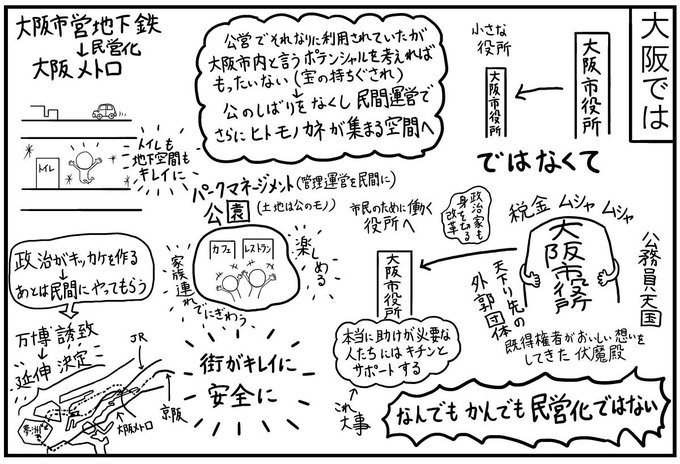 大阪では
大阪市営地下鉄
↓民営化
大阪メトロ
トイレ
トイレも
地下空間も
キレイに
公営でそれなりに利用されていたが
大阪市内と言うポテンシャルを考えれば
もったいない(宝の持ちぐされ)
↓
公のしばりをなくし民間運営で
さらにヒトモノカネが集まる空間へ
小さな
役所
大阪市役所
大阪市役所
ではなくて
パークマネージメント(管理運営を民間に)
公園(土地は公のモノ)
カフェ
レストラン
楽しめる
家族連れでにぎわう
市民のために働く
役所へ
大阪市役所
政治家も
身を切る
改革
税金 ムシャ ムシャ
大阪市役所
公務員天国
天下り先の
外郭団体
既得権者がおいしい想いを
してきた 伏魔殿
政治がキッカケを作る
↓
あとは民間にやってもらう
万博誘致
↓
延伸 決定
JR
京阪
大阪メトロ
夢洲
街がキレイに
安全に
本当に助けが必要な
人たちにはキチンと
サポートする
これ
大事
なんでもかんでも民営化ではない